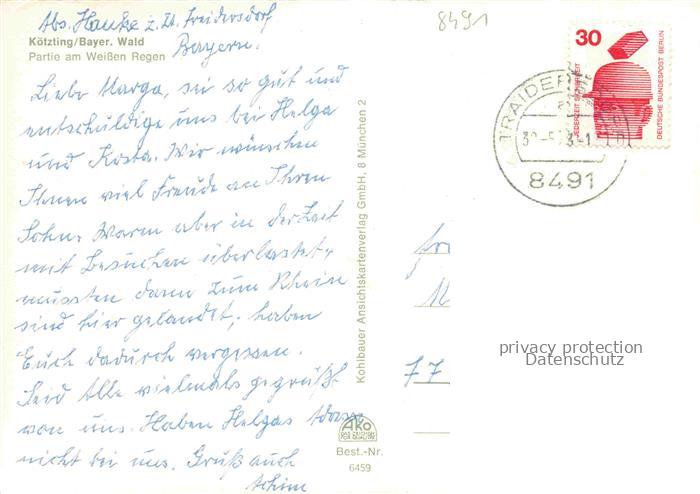 Abs. Hauke z. Zt. Traidersdorf
Bayern.
8491
Kötzting/Bayer. Wald
Partie am Weißen Regen
Liebe Marga, sei so gut und
entschuldige uns bei Helga
und Kosta. Wir wünschen
Ihnen viel Freude an Ihren
Sohn. Waren aber in der Zeit
mit Besuchen überlastet,
mussten dann zum Rhein
sind hier gelandet, haben
Euch dadurch vergessen.
Seid Alle vielmals gegrüßt
von uns. Haben Helgas Adresse
nicht bei uns. Gruß auch
Achim
Kohlbauer Ansichtskartenverlag GmbH, 8 München 2
Ako
Best.-Nr.
6459
30
JEDERZEIT SICHERHEIT
DEUTSCHE BUNDESPOST BERLIN
TRAIDER
8491
77
privacy protection
Datenschutz